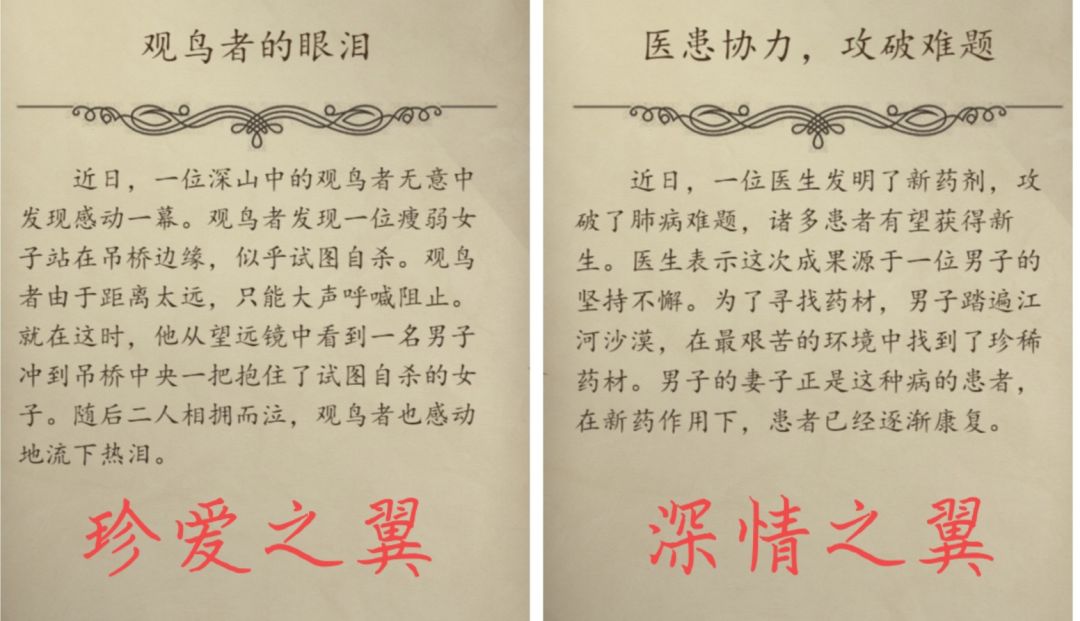 观鸟者的眼泪
近日，一位深山中的观鸟者无意中
发现感动一幕。观鸟者发现一位瘦弱女
子站在吊桥边缘，似乎试图自杀。观鸟
者由于距离太远，只能大声呼喊阻止。
就在这时，他从望远镜中看到一名男子
冲到吊桥中央一把抱住了试图自杀的女
子。随后二人相拥而泣，观鸟者也感动
地流下热泪。
珍爱之翼
医患协力，攻破难题
近日，一位医生发明了新药剂，攻
破了肺病难题，诸多患者有望获得新
生。医生表示这次成果源于一位男子的
坚持不懈。为了寻找药材，男子踏遍江
河沙漠，在最艰苦的环境中找到了珍稀
药材。男子的妻子正是这种病的患者，
在新药作用下，患者已经逐渐康复。
深情之翼